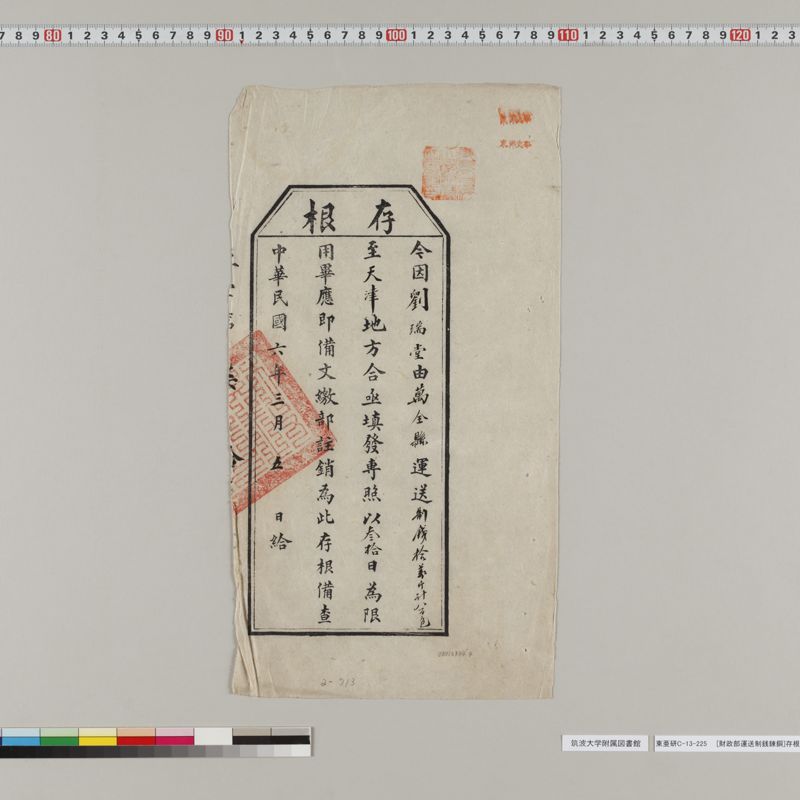 7 8 9 80 1 2 3 4 5 6 7 8 9 90 1 2 3 4 5 6 7 8 9 100 1 2 3 4 5 6 7 8 9 110 1 2 3 4 5 6 7 8 9 120 1 2 3
東洋文庫
存根
今因劉瑞堂由萬全縣運送制錢拾萬斤計八百包
至天津地方合亟填發専照以叁拾日為限
用畢應即備文繳部註銷為此存根備查
中華民國六年三月五日給
2-713
筑波大学附属図書館
東亜研C-13-225 [財政部運送制銭錬銅]存根